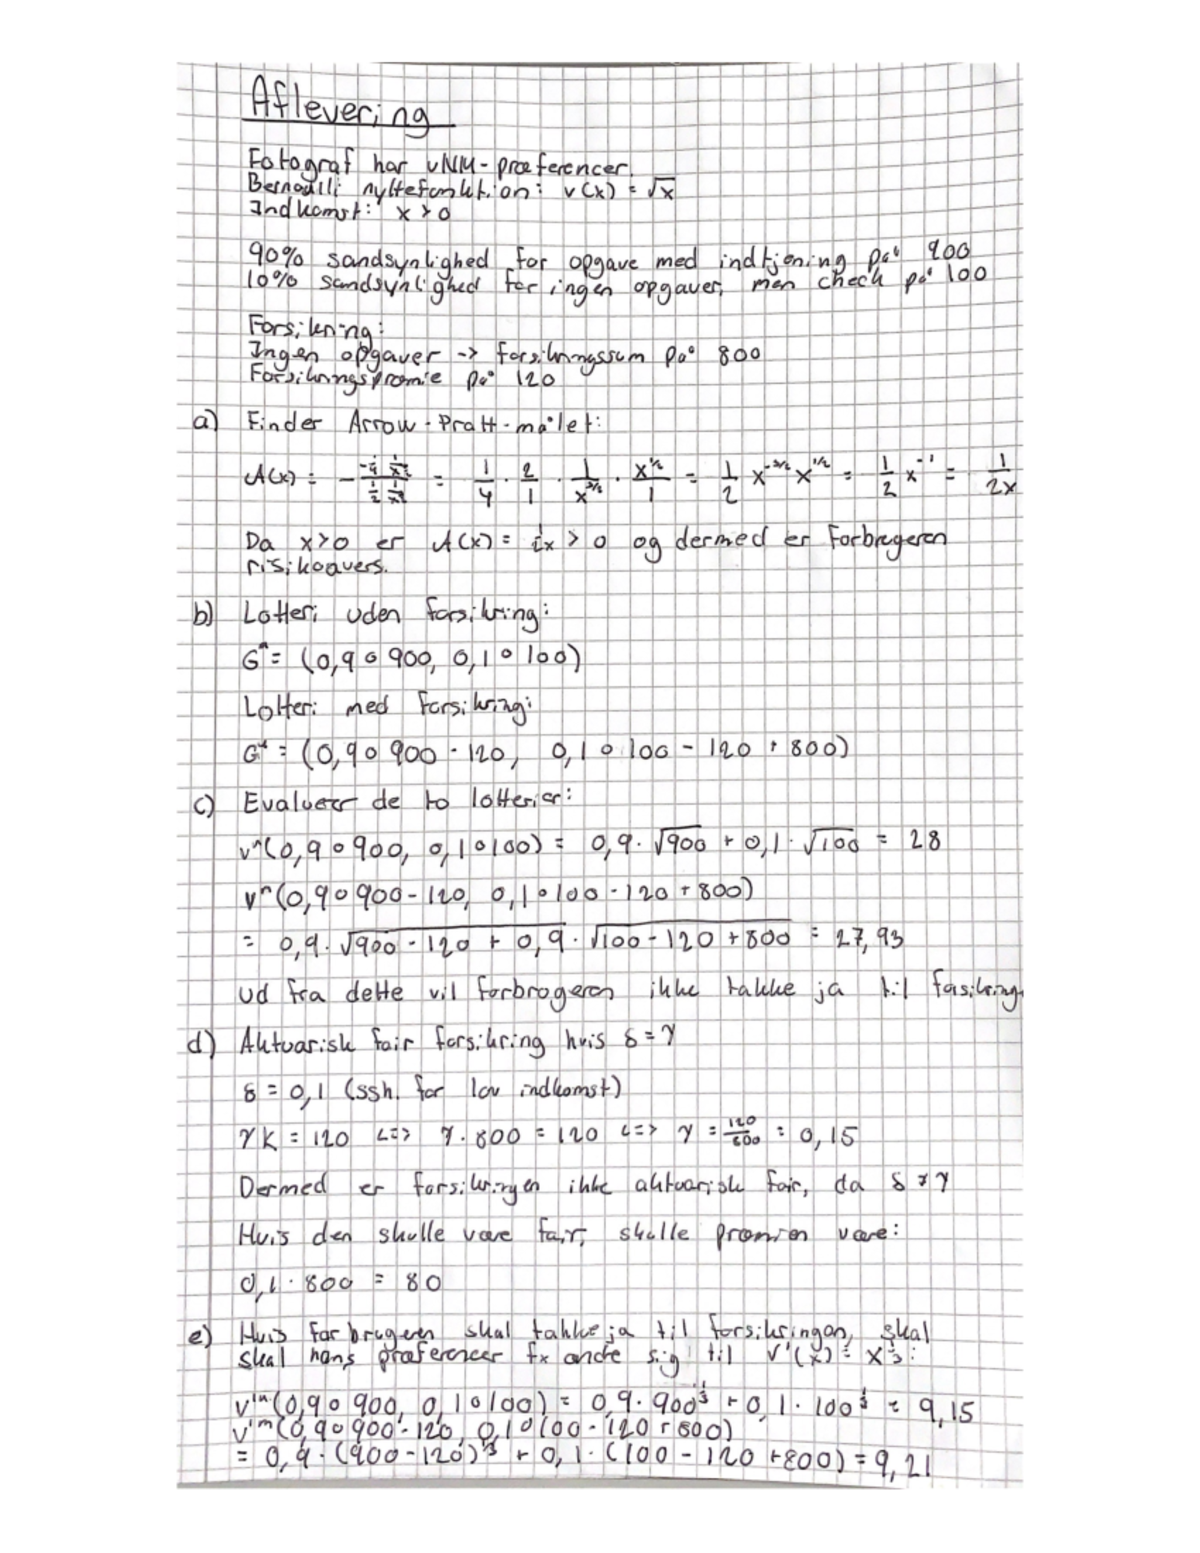 Aflevering
Fotograf har vNM-præferencer.
Bernoulli nyttefunktion: v(x) = √x
Indkomst: x > 0
90% sandsynlighed for opgave med indtjening på 900
10% sandsynlighed for ingen opgaver, men check på 100
Forsikring:
Ingen opgaver -> forsikringssum på 800
Forsikringspræmie på 120
a) Finder Arrow-Pratt-målet:
A(x) = - (-1/4 · 1/x^(3/2)) / (1/2 · 1/x^(1/2)) = 1/4 · 2/1 · 1/x^(3/2) · x^(1/2)/1 = 1/2 x^(-3/2) x^(1/2) = 1/2 x^(-1) = 1/2x
Da x > 0 er A(x) = 1/2x > 0 og dermed er Forbrugeren
risikoavers.
b) Lotteri uden forsikring:
G^n = (0,9 ∘ 900, 0,1 ∘ 100)
Lotteri med forsikring:
G^+ = (0,9 ∘ 900 - 120, 0,1 ∘ 100 - 120 + 800)
c) Evaluerer de to lotterier:
v^n(0,9 ∘ 900, 0,1 ∘ 100) = 0,9 · √900 + 0,1 · √100 = 28
v^n(0,9 ∘ 900 - 120, 0,1 ∘ 100 - 120 + 800)
= 0,9 · √900 - 120 + 0,9 · √100 - 120 + 800 = 27,93
Ud fra dette vil forbrugeren ikke takke ja til forsikring.
d) Aktuarisk fair forsikring hvis δ = γ
δ = 0,1 (ssh. for lav indkomst)
γK = 120 <=> γ · 800 = 120 <=> γ = 120/800 = 0,15
Dermed er forsikringen ikke aktuarisk fair, da δ ≠ γ
Hvis den skulle være fair, skulle præmien være:
0,1 · 800 = 80
e) Hvis forbrugeren skal takke ja til forsikringen, skal
skal hans præferencer fx ændre sig til v'(x) = x^(1/3):
v'^n(0,9 ∘ 900, 0,1 ∘ 100) = 0,9 · 900^(1/3) + 0,1 · 100^(1/3) = 9,15
v'^m(0,9 ∘ 900 - 120, 0,1 ∘ 100 - 120 + 800)
= 0,9 · (900 - 120)^(1/3) + 0,1 · (100 - 120 + 800) = 9,21